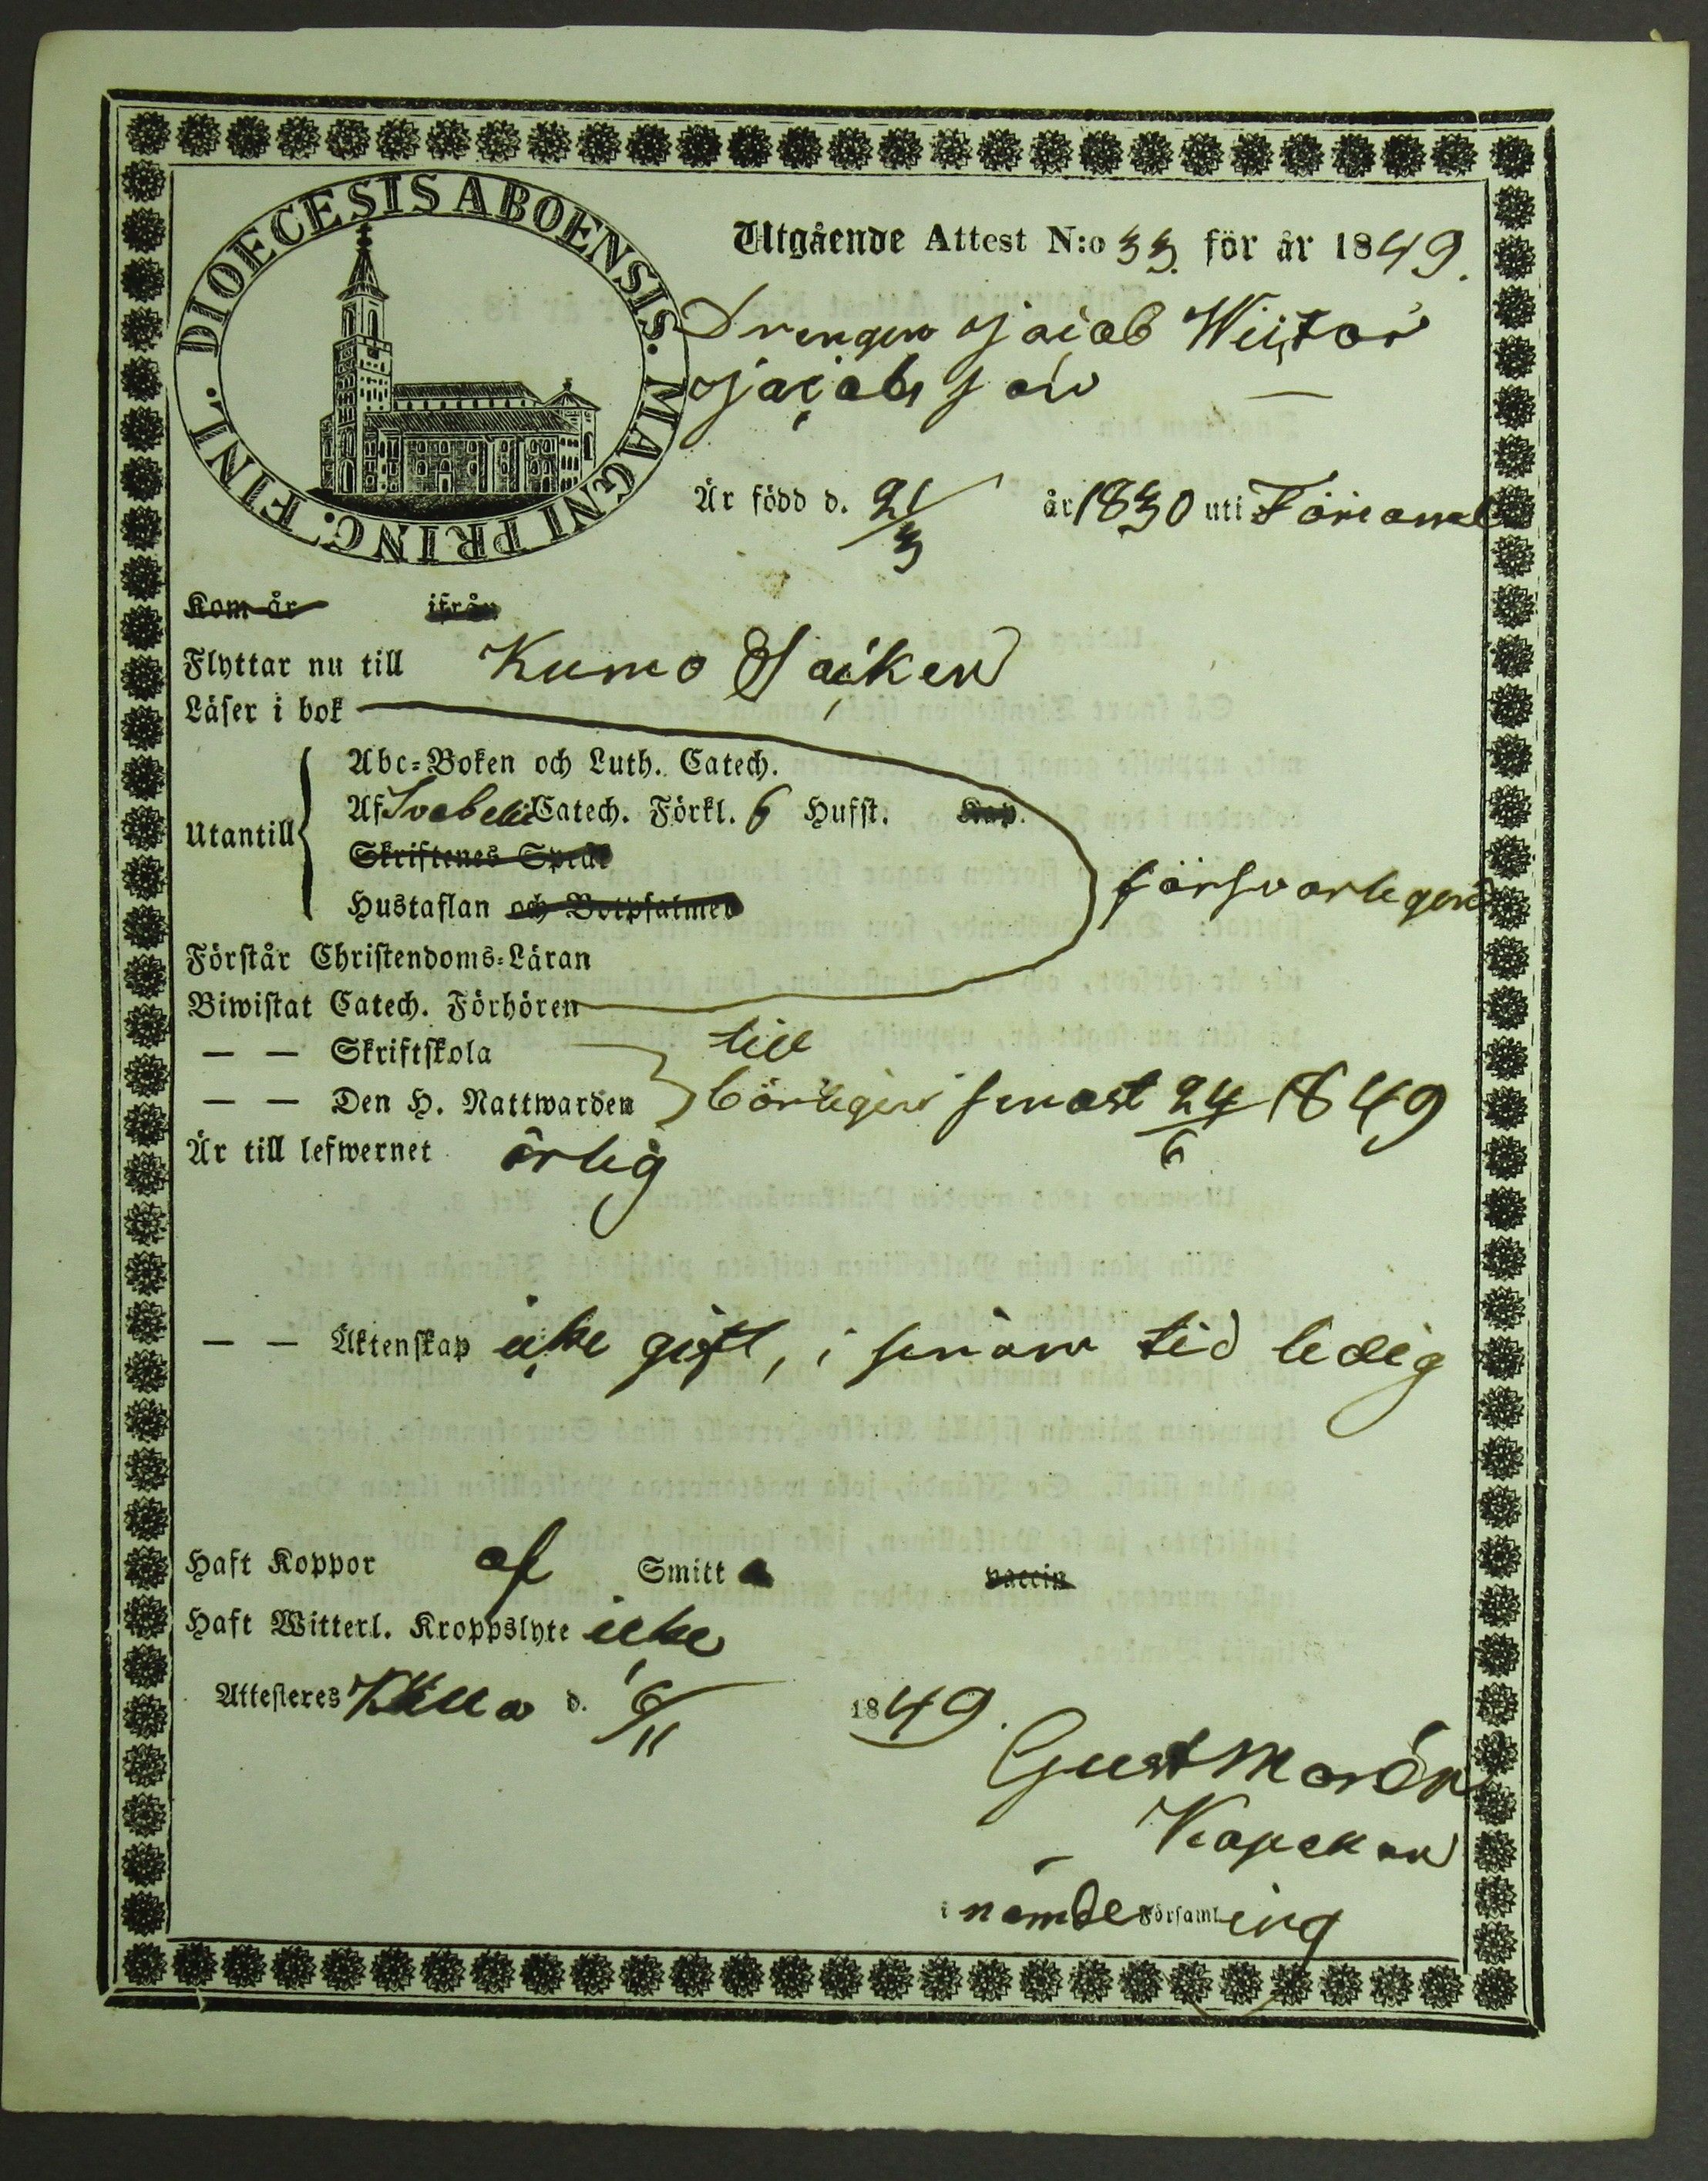 DIOECESIS ABOENSIS. MAGNI PRINC. FINL.
Utgående Attest N:o 33. för år 1849.
Drengen Jacob Wictor
Jacobsson
Är född d. 21/3 år 1830 uti
Kom år ifrån
Flyttar nu till Kumo Socken
Läser i bok
Abc-Boken och Luth. Catech.
Af Svebelii Catech. Förkl. 6 Hufst. Kap.
Utantill
Skriftenes Språk
Hustaflan och Botpsalmer
försvarligen
Förstår Christendoms-Läran
Biwistat Catech. Förhören
— — Skriftskola till
— — Den H. Nattwarden börligen senast 24/6 1849
Är till lefwernet ärlig
— — Äktenskap icke gift, i senare tid ledig
Haft Koppor af Smitta vaccin
Haft Witterl. Kroppslyte icke
Attesteres d. 6/11 1849.
Gust Morén
Kapellan
i nämde Församling